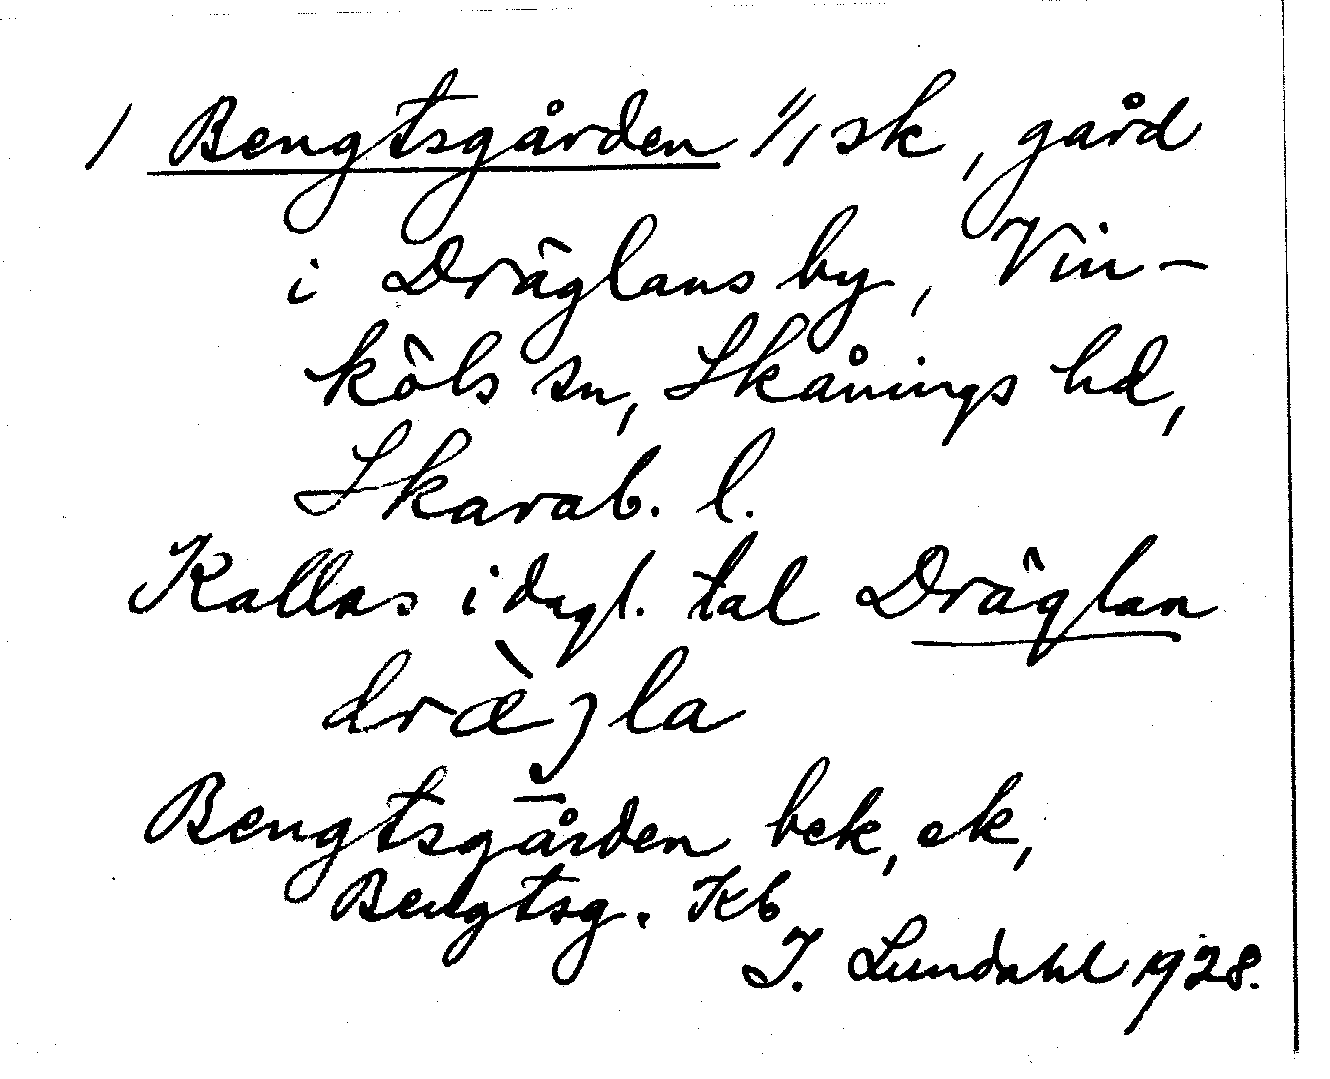 1 Bengtsgården 1/1 sk, gård
i Dräglans by, Vin-
köls sn, Skånings hd,
Skarab. l.
Kallas i dagl. tal Dräglan
dræ̀ʒla
Bengtsgården bek, ek,
Bengtsg. Kb
I. Lundahl 1928.